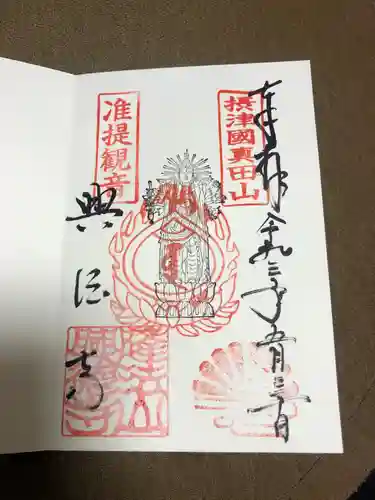 奉拝 令和三年五月三十日
摂津國真田山
准提観音
興徳寺